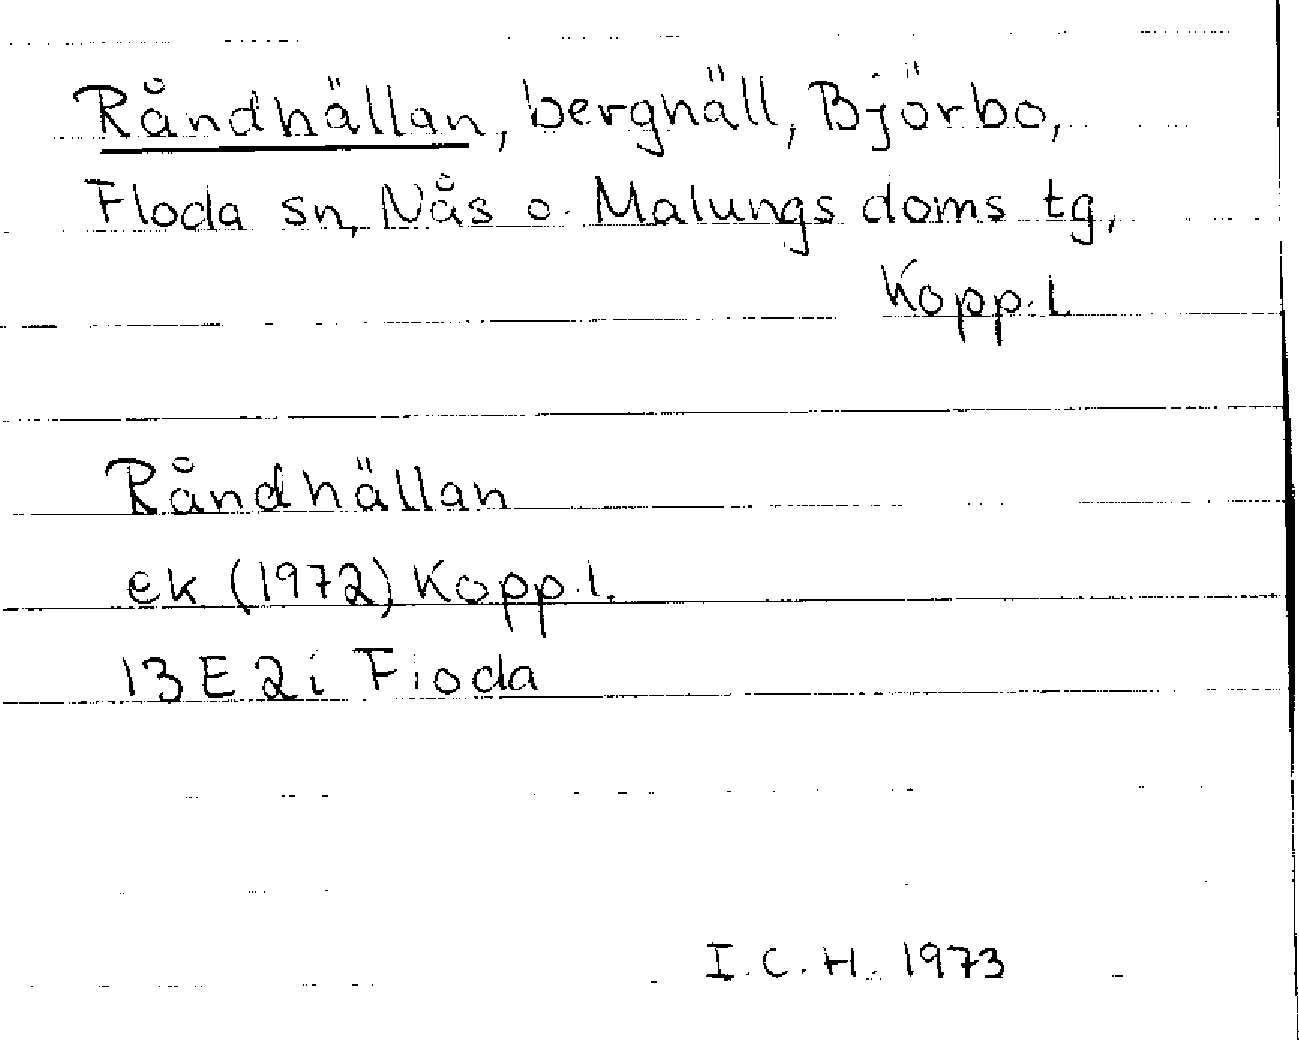 Råndhällan, berghäll, Björbo,
Floda sn, Nås o. Malungs doms tg,
Kopp. l.
Råndhällan
ek (1972) Kopp. l.
13 E 2i Floda
I. C. H. 1973